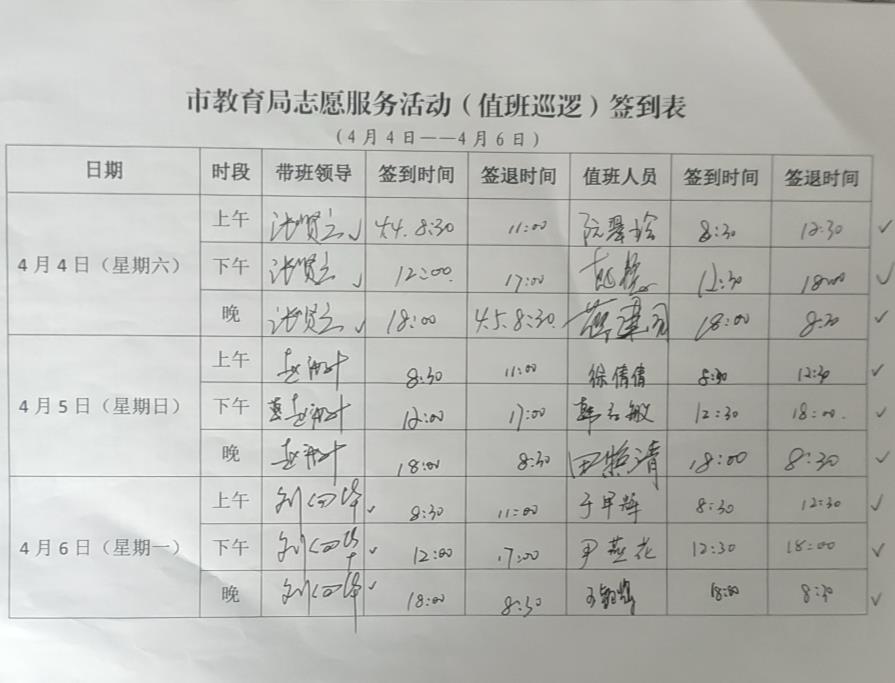 市教育局志愿服务活动（值班巡逻）签到表
（4月4日——4月6日）
日期 时段 带班领导 签到时间 签退时间 值班人员 签到时间 签退时间
4月4日（星期六）
上午 4.4. 8:30 11:00 8:30 12:30 ✓
下午 12:00 17:00 12:30 18:00 ✓
晚 18:00 4.5. 8:30 18:00 8:30 ✓
4月5日（星期日）
上午 8:30 11:00 徐倩倩 8:30 12:30 ✓
下午 12:00 17:00 12:30 18:00 ✓
晚 18:00 8:30 田照清 18:00 8:30 ✓
4月6日（星期一）
上午 8:30 11:00 8:30 12:30 ✓
下午 12:00 17:00 尹燕花 12:30 18:00 ✓
晚 18:00 8:30 18:00 8:30 ✓